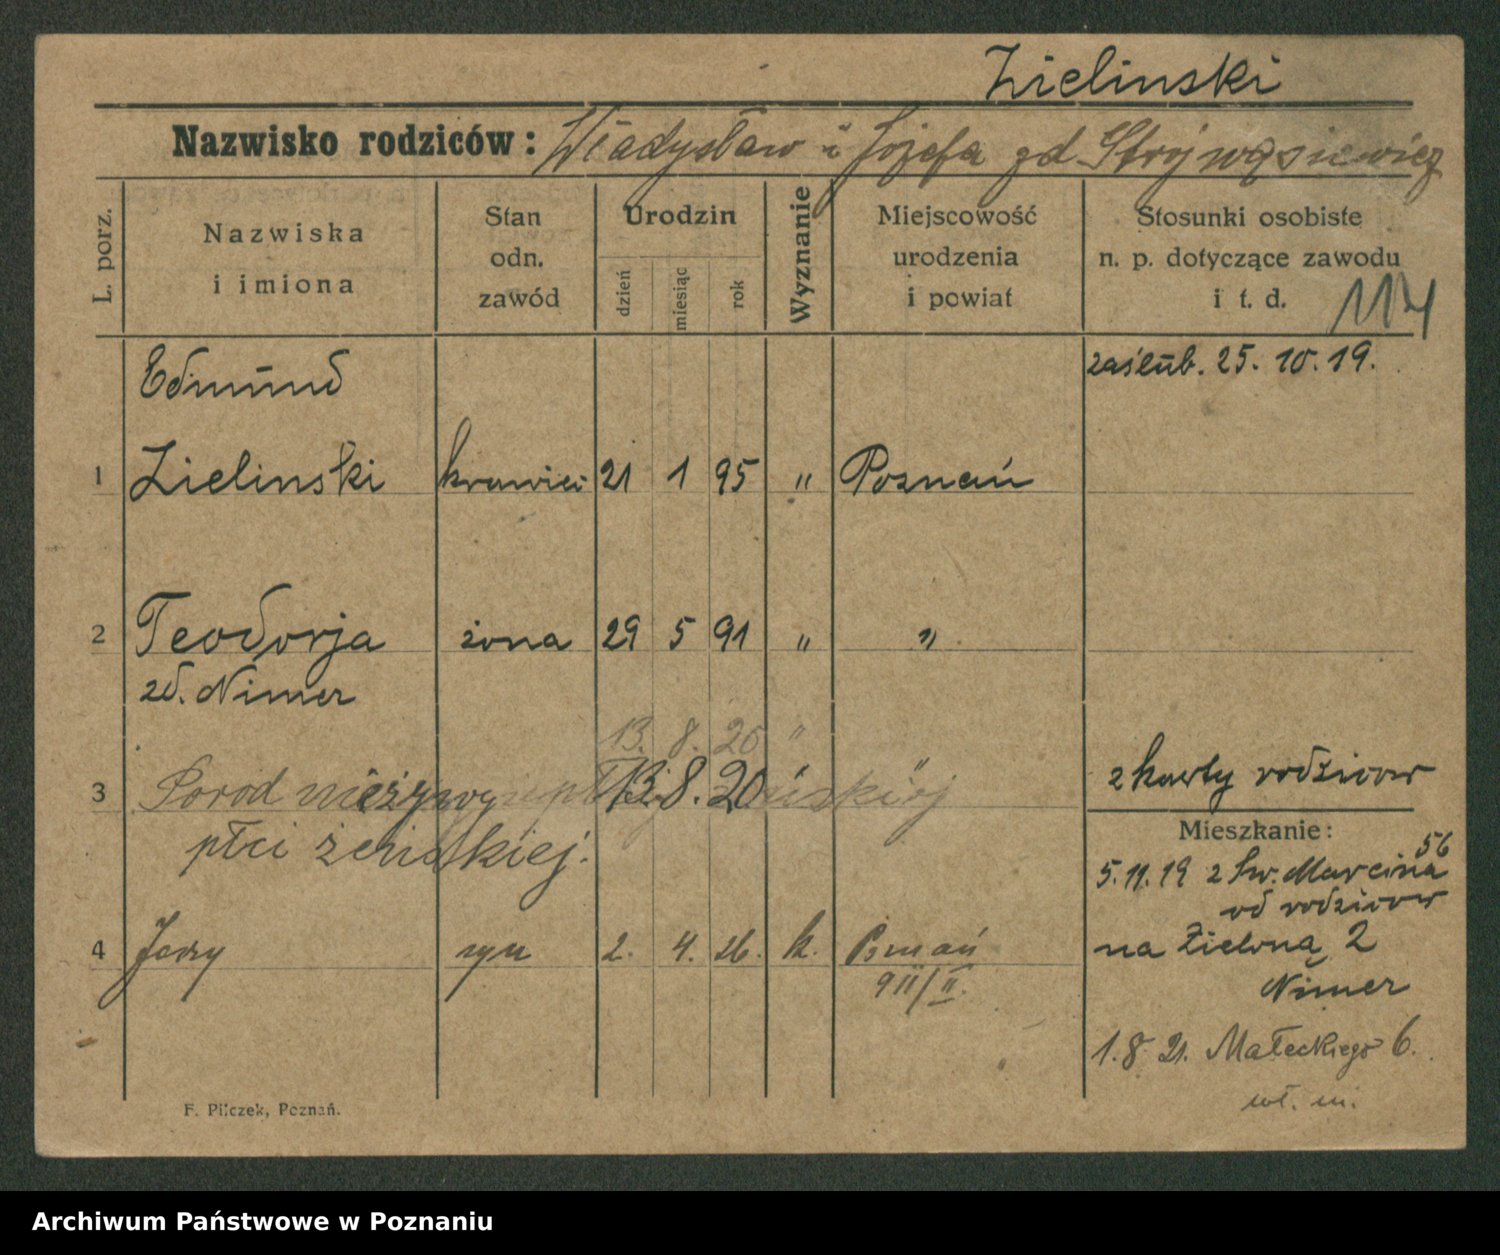 Zielinski
Nazwisko rodziców: Władysław i Józefa zd Strójwąsiewicz
L. porz.
Nazwiska
i imiona
Stan
odn.
zawód
Urodzin
dzień
miesiąc
rok
Wyznanie
Miejscowość
urodzenia
i powiat
Stosunki osobiste
n. p. dotyczące zawodu
i t. d.
Edmund
zaślub. 25. 10. 19.
1 Zielinski krawiec 21 1 95 " Poznań
2 Teodorja żona 29 5 91 " "
zd. Nimer
13. 8. 20 "
3 Porod nieżywy 13. 8. 20
płci żeńskiej.
z karty rodziców
Mieszkanie:
5. 11. 19 z Św. Marcina 56
od rodziców
4 Jerzy syn 2. 4. 26. k. Poznań
911/II.
na Zieloną 2
Nimer
1. 8 21. Małeckiego 6.
wł. m.
F. Pilczek, Poznań.
Archiwum Państwowe w Poznaniu